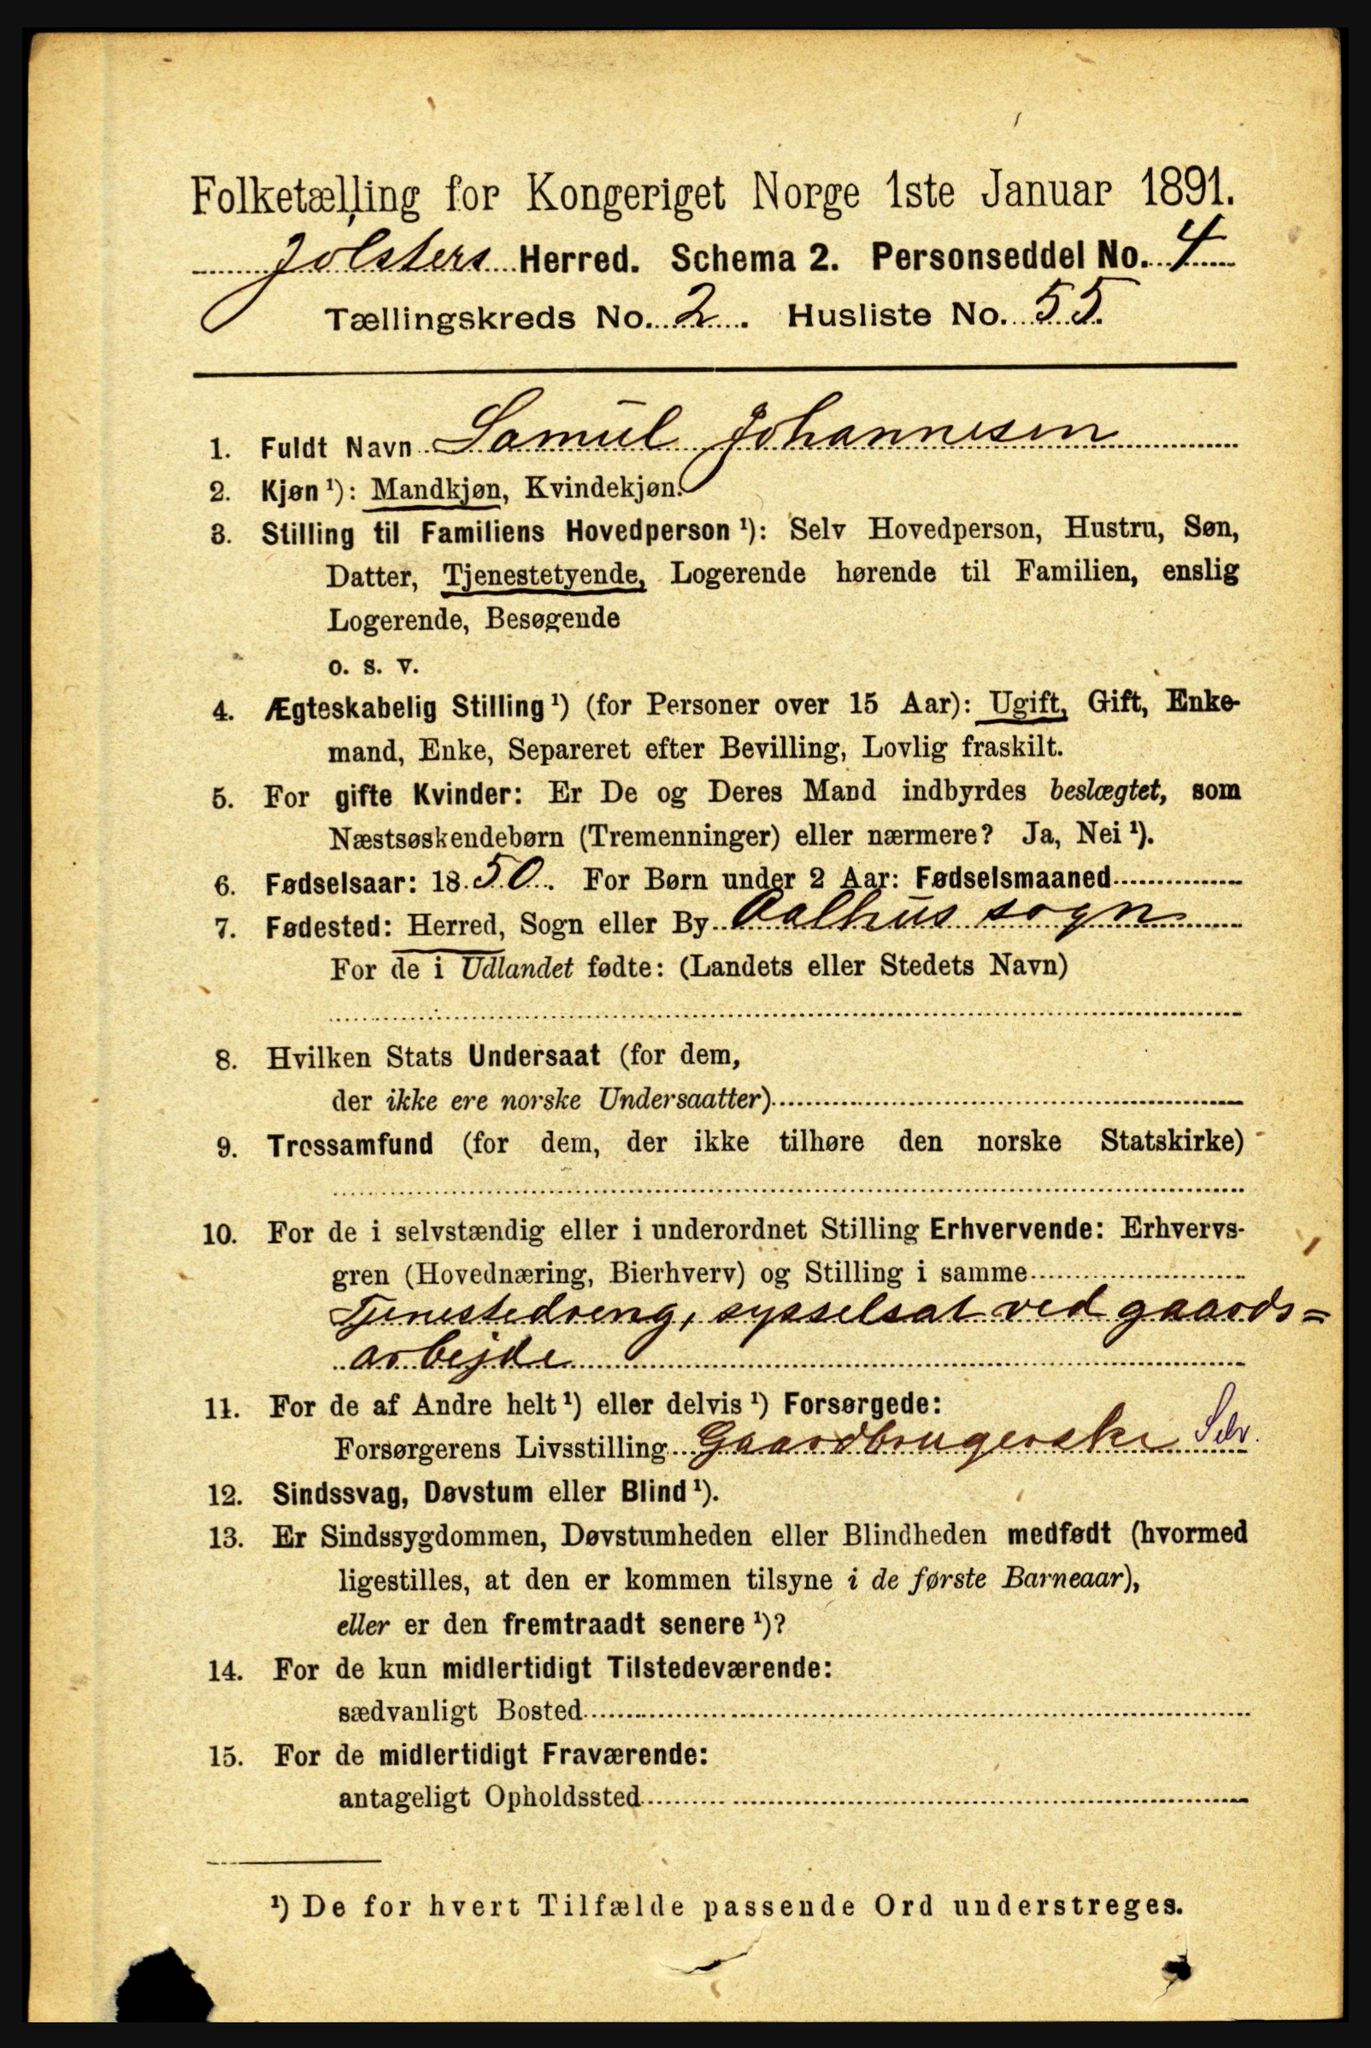 Folketælling for Kongeriget Norge 1ste Januar 1891.
Jølsters Herred. Schema 2. Personseddel No. 4
Tællingskreds No. 2. Husliste No. 55.
1. Fuldt Navn Samuel Johannesen
2. Kjøn¹): Mandkjøn, Kvindekjøn.
3. Stilling til Familiens Hovedperson¹): Selv Hovedperson, Hustru, Søn,
Datter, Tjenestetyende, Logerende hørende til Familien, enslig
Logerende, Besøgende
o. s. v.
4. Ægteskabelig Stilling¹) (for Personer over 15 Aar): Ugift, Gift, Enke-
mand, Enke, Separeret efter Bevilling, Lovlig fraskilt.
5. For gifte Kvinder: Er De og Deres Mand indbyrdes beslægtet, som
Næstsøskendebørn (Tremenninger) eller nærmere? Ja, Nei¹).
6. Fødselsaar: 1850. For Børn under 2 Aar: Fødselsmaaned
7. Fødested: Herred, Sogn eller By Aalhus sogn
For de i Udlandet fødte: (Landets eller Stedets Navn)
8. Hvilken Stats Undersaat (for dem,
der ikke ere norske Undersaatter)
9. Trossamfund (for dem, der ikke tilhøre den norske Statskirke)
10. For de i selvstændig eller i underordnet Stilling Erhvervende: Erhvervs-
gren (Hovednæring, Bierhverv) og Stilling i samme
Tjenestedreng, sysselsat ved gaards=
arbejde
11. For de af Andre helt¹) eller delvis¹) Forsørgede:
Forsørgerens Livsstilling Gaardbrugerske Selv.
12. Sindssvag, Døvstum eller Blind¹).
13. Er Sindssygdommen, Døvstumheden eller Blindheden medfødt (hvormed
ligestilles, at den er kommen tilsyne i de første Barneaar),
eller er den fremtraadt senere¹)?
14. For de kun midlertidigt Tilstedeværende:
sædvanligt Bosted
15. For de midlertidigt Fraværende:
antageligt Opholdssted
¹) De for hvert Tilfælde passende Ord understreges.